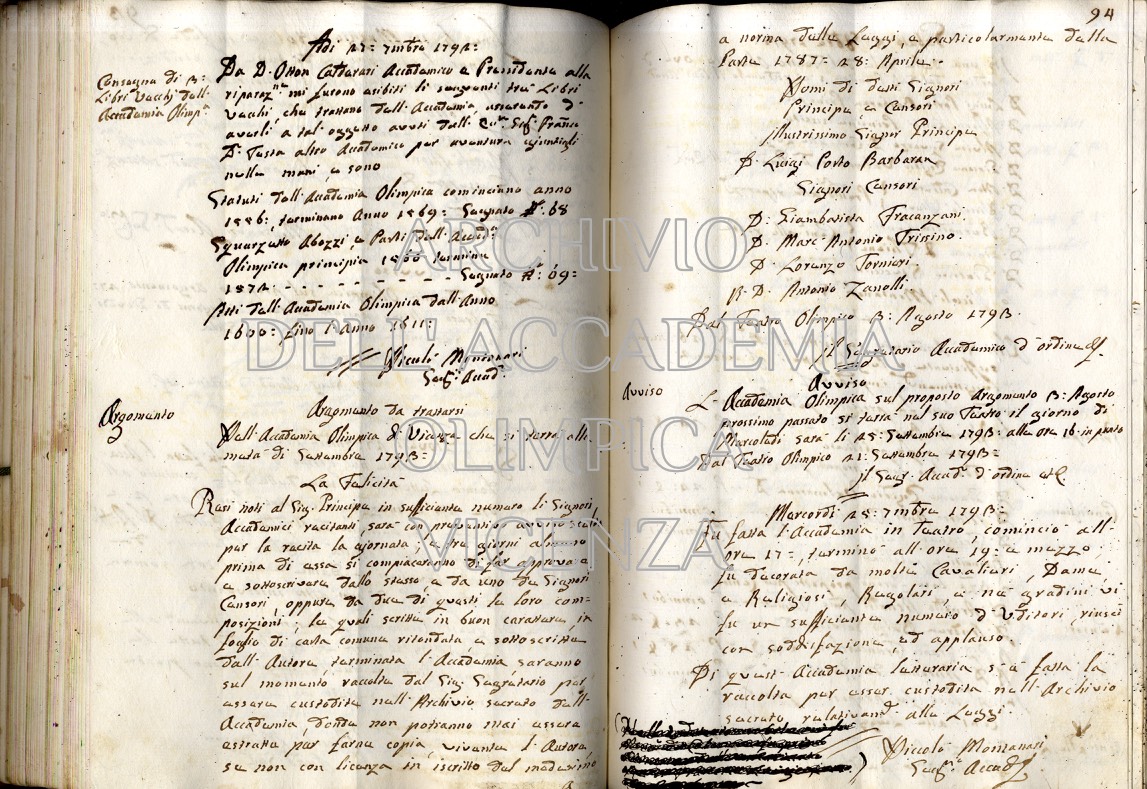 Adi 27: 7mbre 1792:
Consegna di 3:
Libri Vecchj dell'
Accademia Olimp:ca
Da D. Otton Calderari Accademico e Presidente alle
riparaz:ni mi furono esibiti li seguenti tre Libri
vecchi, che trattano dell'Accademia asserendo d'
averli a tal oggetto avuti dall' Seg: Franc:o
D: Testa altro Accademico per aventura
nelle mani e sono
Statuti dell'Accademia Olimpica cominciano anno
1556: terminano Anno 1569: Segnato N:o 68
Squarzetto Abozzi e Parti dell'Accad:a
Olimpica principia 1580 termina
Segnato N:o 69=
Atti dell'Accademia Olimpica dall'Anno
1600: fino l'Anno 1611:
Niccolò Montanari
Seg:o Accad:o
Argomento
Argomento da trattarsi
Dall'Accademia Olimpica di Vicenza che si terrà alla
metà di Settembre 1793=
La Felicità
Resi noti al Sig: Principe in sufficiente numero li Signori
Accademici recitanti sarà con preventivo avviso
per la recita la giornata, e tre giorni almeno
prima di essa si compiaceranno di far approvare
e sottoscrivere dallo stesso e da uno de Signori
Censori, oppure da due di questi le loro com=
posizioni; le quali scritte in buon carattere in
foglio di carta comune ritondata e sottoscritte
dall'Autore terminata l'Accademia saranno
sul momento raccolte dal Sig: Segretario per
essere custodite nell'Archivio secreto dell'
Accademia, donde non potranno mai essere
estratte per farne copia, vivente l'Autore,
se non con licenza in iscritto del medesimo
94
a norma delle Leggi, e particolarmente della
Parte 1787= 28: Aprile.
Nomi di detti Signori
Principe, e Censori
Illustrissimo Signor Principe
D. Luigi Porto Barbaran
Signori Censori
D: Giambatista Fracanzani.
D. Marc'Antonio Trissino.
D. Lorenzo Tornieri.
R. D. Antonio Zanolli.
Dal Teatro Olimpico 3: Agosto 1793.
Il Segretario Accademico d'ordine
Avviso
Avviso
L'Accademia Olimpica sul proposto Argomento 3: Agosto
prossimo passato si terrà nel suo Teatro il giorno di
Mercoledì sarà li 25: Settembre 1793: alle ore 16: in punto
Dal Teatro Olimpico 21: Settembre 1793=
Il Seg: Accad:o d'ordine
Mercordì 25: 7mbre 1793=
Fu fatta l'Accademia in Teatro, cominciò all'
ora 17:, terminò all'ore 19: e mezzo;
fu decorata da molti Cavalieri, Dame,
e Religiosi, Regolati, e ne gradini vi
fu un sufficiente numero d'Uditori, riuscì
con soddisfazione, ed applauso.
Di quest'Accademia letteraria s'è fatta la
raccolta per esser custodita nell'Archivio
secreto relativam:te alle Leggi
Niccolò Montanari
Seg:o Accad:o
ARCHIVIO
DELL'ACCADEMIA
OLIMPICA
VICENZA